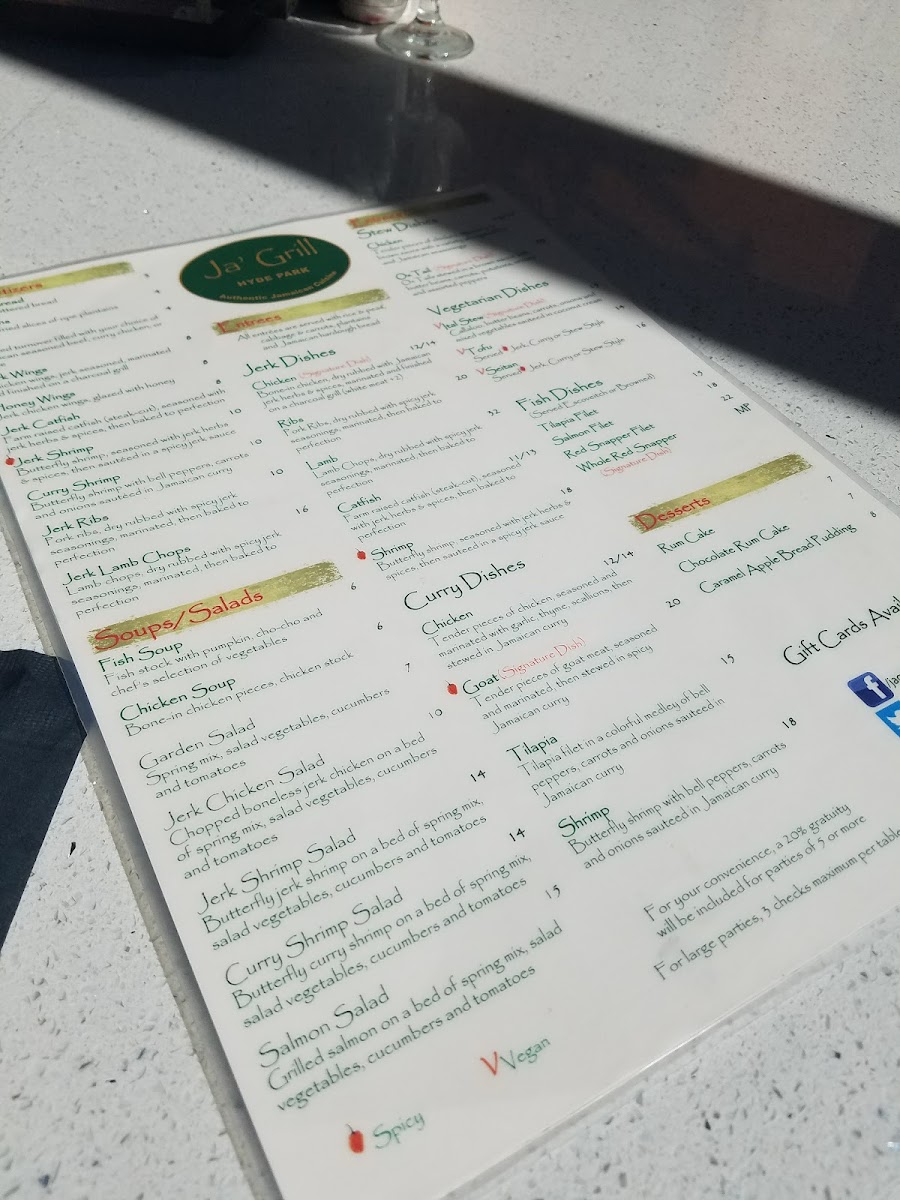 Ja' Grill
HYDE PARK
Authentic Jamaican Cuisine
Jerk Catfish
Farm raised catfish (steak-cut), seasoned with
jerk herbs & spices, then baked to perfection
Jerk Shrimp
Butterfly shrimp, seasoned with jerk herbs
& spices, then sautéed in a spicy jerk sauce
10
Curry Shrimp
Butterfly shrimp with bell peppers, carrots
and onions sautéed in Jamaican curry
10
Jerk Ribs
Pork ribs, dry rubbed with spicy jerk
seasonings, marinated, then baked to
perfection
10
Jerk Lamb Chops
Lamb chops, dry rubbed with spicy jerk
seasonings, marinated, then baked to
perfection
16
Soups/Salads
Fish Soup 6
Fish stock with pumpkin, cho-cho and
chef's selection of vegetables
Chicken Soup 6
Bone-in chicken pieces, chicken stock
Garden Salad 7
Spring mix, salad vegetables, cucumbers
and tomatoes
Jerk Chicken Salad 10
Chopped boneless jerk chicken on a bed
of spring mix, salad vegetables, cucumbers
and tomatoes
Jerk Shrimp Salad 14
Butterfly jerk shrimp on a bed of spring mix,
salad vegetables, cucumbers and tomatoes
Curry Shrimp Salad 14
Butterfly curry shrimp on a bed of spring mix,
salad vegetables, cucumbers and tomatoes
Salmon Salad 15
Grilled salmon on a bed of spring mix, salad
vegetables, cucumbers and tomatoes
Spicy
V Vegan
Entrees
All entrees are served with rice & peas,
cabbage & carrots, plantains
and Jamaican hardough bread
Jerk Dishes
Chicken (Signature Dish) 12/14
Bone-in chicken, dry rubbed with Jamaican
jerk herbs & spices, marinated, and finished
on a charcoal grill (white meat +2)
Ribs 20
Pork Ribs, dry rubbed with spicy jerk
seasonings, marinated, then baked to
perfection
Lamb 32
Lamb Chops, dry rubbed with spicy jerk
seasonings, marinated, then baked to
perfection
Catfish 11/13
Farm raised catfish (steak-cut), seasoned
with jerk herbs & spices, then baked to
perfection
Shrimp 18
Butterfly shrimp, seasoned with jerk herbs &
spices, then sautéed in a spicy jerk sauce
Curry Dishes
Chicken 12/14
Tender pieces of chicken, seasoned and
marinated with garlic, thyme, scallions, then
stewed in Jamaican curry
Goat (Signature Dish) 20
Tender pieces of goat meat, seasoned
and marinated, then stewed in spicy
Jamaican curry
Tilapia 15
Tilapia filet in a colorful medley of bell
peppers, carrots and onions sautéed in
Jamaican curry
Shrimp 18
Butterfly shrimp with bell peppers, carrots
and onions sautéed in Jamaican curry
Stew Dishes
Chicken
Ox Tail (Signature Dish)
Vegetarian Dishes
V Ital Stew (Signature Dish)
V Tofu
Served Jerk, Curry or Stew Style
V Seitan 16
Served Jerk, Curry or Stew Style
Fish Dishes
(Served Escoveitch or Brownstewed)
Tilapia Filet 15
Salmon Filet 18
Red Snapper Filet 22
Whole Red Snapper MP
(Signature Dish)
Desserts
Rum Cake 7
Chocolate Rum Cake 7
Caramel Apple Bread Pudding 8
Gift Cards Avail
For your convenience, a 20% gratuity
will be included for parties of 5 or more
For large parties, 3 checks maximum per table